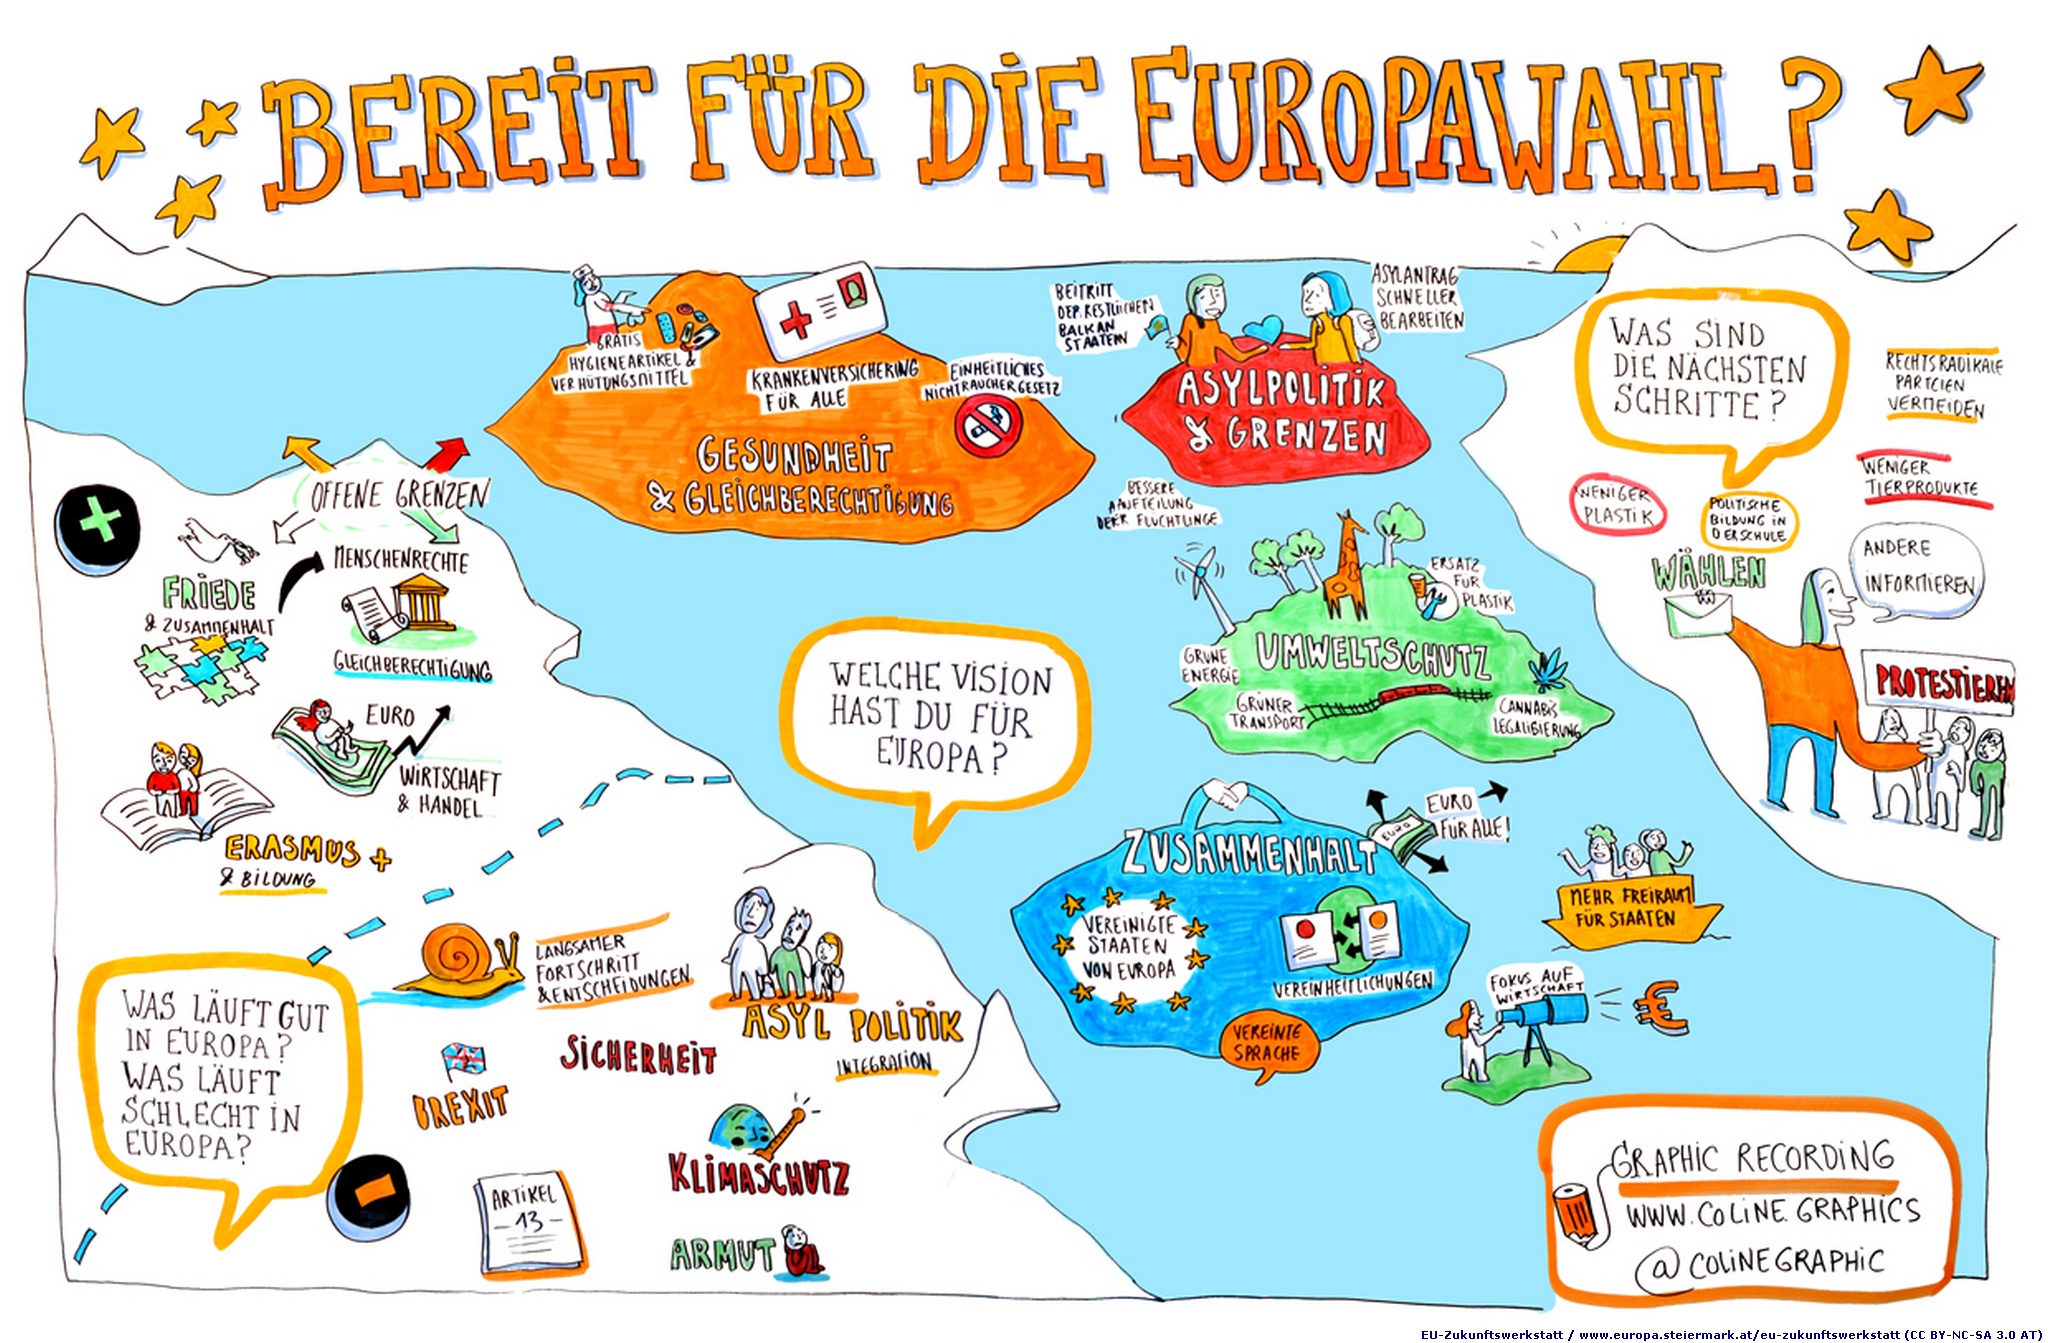 BEREIT FÜR DIE EUROPAWAHL?
GRATIS
HYGIENEARTIKEL &
VERHÜTUNGSMITTEL
KRANKENVERSICHERING
FÜR ALLE
EINHEITLICHES
NICHTRAUCHERGESETZ
GESUNDHEIT
& GLEICHBERECHTIGUNG
BEITRITT
DER RESTLICHEN
BALKAN
STAATEN
ASYLANTRAG
SCHNELLER
BEARBEITEN
ASYLPOLITIK
& GRENZEN
BESSERE
AUFTEILUNG
DER FLÜCHTLINGE
WAS SIND
DIE NÄCHSTEN
SCHRITTE?
RECHTSRADIKALE
PARTEIEN
VERMEIDEN
WENIGER
TIERPRODUKTE
WENIGER
PLASTIK
POLITISCHE
BILDUNG IN
DER SCHULE
WÄHLEN
ANDERE
INFORMIEREN
PROTESTIEREN
OFFENE GRENZEN
MENSCHENRECHTE
FRIEDE
& ZUSAMMENHALT
GLEICHBERECHTIGUNG
EURO
WIRTSCHAFT
& HANDEL
ERASMUS +
& BILDUNG
WELCHE VISION
HAST DU FÜR
EUROPA?
ERSATZ
FÜR
PLASTIK
UMWELTSCHUTZ
GRÜNE
ENERGIE
GRÜNER
TRANSPORT
CANNABIS
LEGALIBIERUNG
ZUSAMMENHALT
EURO
EURO
FÜR ALLE!
VEREINIGTE
STAATEN
VON EUROPA
VEREINHEITLICHUNGEN
VEREINTE
SPRACHE
MEHR FREIRAUM
FÜR STAATEN
FOKUS AUF
WIRTSCHAFT
€
WAS LÄUFT GUT
IN EUROPA?
WAS LÄUFT
SCHLECHT IN
EUROPA?
LANGSAMER
FORTSCHRITT
& ENTSCHEIDUNGEN
ASYL POLITIK
INTEGRATION
SICHERHEIT
BREXIT
KLIMASCHUTZ
ARTIKEL
-13-
ARMUT
GRAPHIC RECORDING
WWW.COLINE.GRAPHICS
@COLINEGRAPHIC
EU-Zukunftswerkstatt / www.europa.steiermark.at/eu-zukunftswerkstatt (CC BY-NC-SA 3.0 AT)